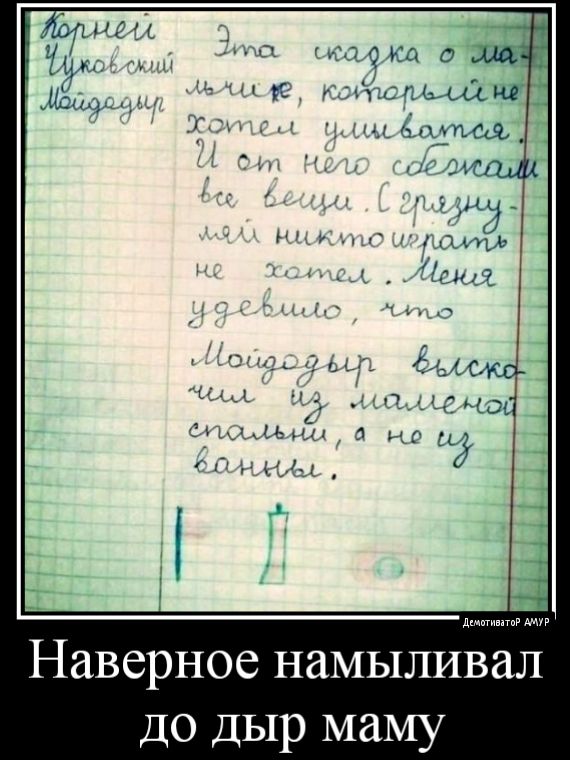 Корней
Чуковский
Мойдадыр
Эта сказка о ма-
льчике, который не
хотел умыватся.
И от него сбежали
все вещи. С грязну-
ляй никто играть
не хотел. Меня
удевило, что
Мойдодыр выско-
чил из маменой
спальни, а не из
ванны.
Демотиватор АМУР
Наверное намыливал
до дыр маму